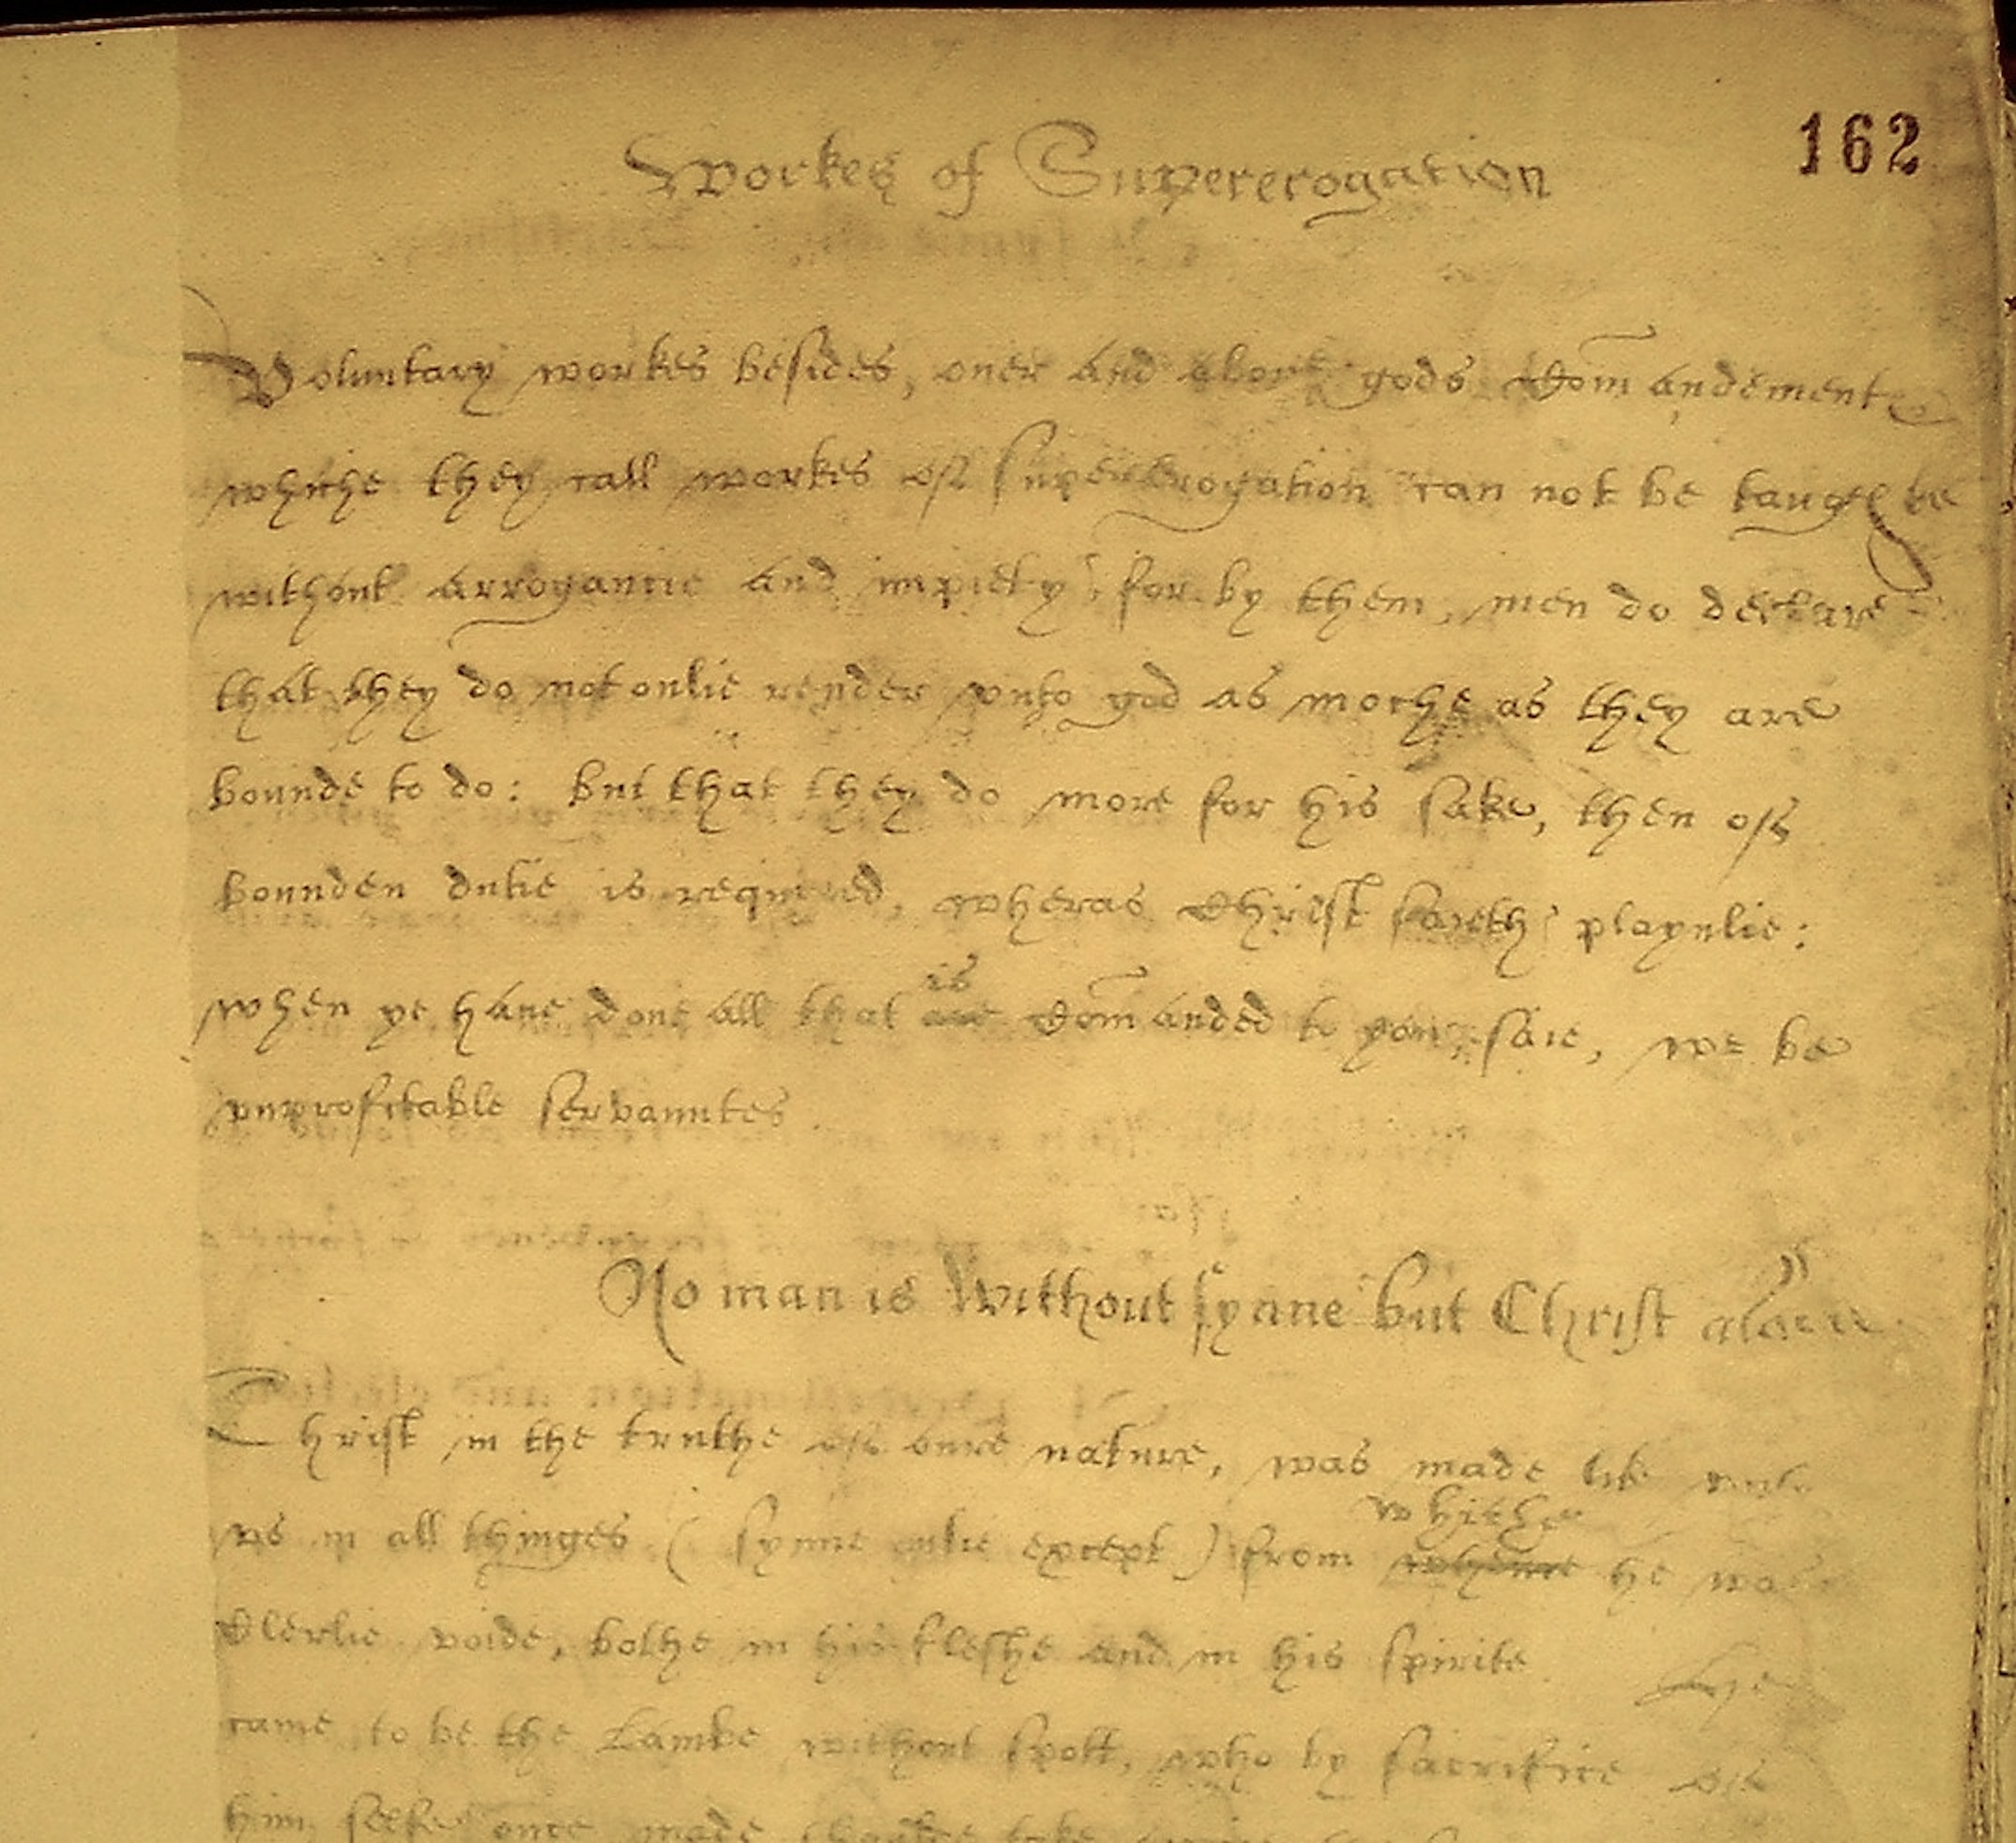 162
Workes of Supererogation
Voluntary workes besides, ouer and aboue gods Com̃andementes
whiche they call workes off supererogation can not be taughte
without arrogancie and impiety, for by them, men do declare
that they do not onlie render vnto god as moche as they are
bounde to do: but that they do more for his sake, then off
bounden dutie is required, wheras Christ saieth playnlie:
is
when ye haue done all that are Com̃anded to you, saie, we be
vnprofitable servauntes
No man is Without synne but Christ alone
Christ in the truthe off oure nature, was made like vnto
whiche
vs in all thinges (synne onlie except) from whence he was
Clerlie voide, bothe in his fleshe and in his spirite He
came to be the Lambe without spott, who by sacrifice off
him selfe once made